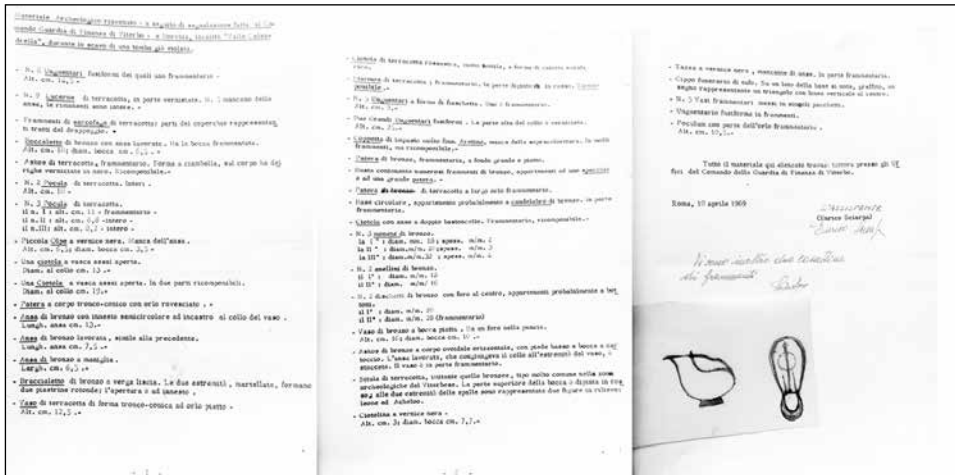 Materiale Archeologico rinvenuto a seguito di segnalazione fatta al Co
mando Guardia di Finanza di Viterbo
della", durante lo scavo di una tomba già violata.
- N. Unguentari fusiformi dei quali uno frammentario -
Alt. cm.
- N. Lucerne di terracotta, in parte verniciate. N. mancano delle
anse, le rimanenti sono intere. -
- Frammenti di sarcofago di terracotta: parti del coperchio rappresentan
ti tratti del drappeggio. -
- Boccaletto di bronzo con ansa lavorata. Ha la bocca frammentata.
Alt. cm. diam. bocca cm.
- Askos di terracotta, frammentario. Forma a ciambella, sul corpo ha del
righe verniciate in nero. Ricomponibile.-
- N. 2 Pocula di terracotta. Interi.
Alt. cm. 10 -
- N. 3 Pocula di terracotta.
il n. I : alt. cm. 11 - frammentario -
il n.II : alt. cm. - intero -
il n.III: alt. cm. - intero -
- Piccola Olpe a vernice nera. Manca dell'ansa.
Alt. cm. diam. bocca cm. 3,5 -
- Una ciotola a vasca assai aperta.
Diam. al collo cm. 13 .-
- Una Ciotola a vasca assai aperta. In due parti ricomponibili.
Diam. al collo cm. 15.-
- Patera a corpo tronco-conico con orlo rovesciato . -
- Ansa di bronzo con innesto semicircolare ad incastro al collo del vaso .
Lungh. ansa cm. 13.-
- Ansa di bronzo lavorata, simile alla precedente.
Lungh. ansa cm. 7,5 .-
- Ansa di bronzo a maniglia.
Largh. cm. 6,5 .-
- Braccialetto di bronzo a verga liscia. Le due estremità , martellate, formano
due piastrine rotonde; l'apertura è ad innesto .
- Vaso di terracotta di forma tronco-conica ad orlo piatto -
Alt. cm. 12,5 .-
- Ciotola di terracotta
- di terracotta ; frammentario; in parte dipinta in rosso.
ponibile .-
- N. Unguentari a forma di fiaschetto. Uno è frammentario.
Alt. cm.
- Due Grandi Unguentari fusiformi . La parte alta del collo è verniciata.
Alt. cm.
- Coppetta di impasto molto fine Aretina, manca della sopracolitura. In molti
frammenti, ma ricomponibile.-
- Patera di bronzo, frammentaria, a fondo grande e piano.
- Busta contenente numerosi frammenti di bronzo, appartenenti ad uno specchio
e ad una grande patera. -
- Patera di terracotta a largo orlo frammentaria.
- Base circolare, appartenente probabilmente a candelabro di bronzo. In parte
frammentaria.
- Ciotola con anse a doppio bastoncello. Frammentaria, ricomponibile.-
- N. 3 monete di bronzo.
- N. 2 anellini di bronzo.
il I° : diam. m/m.
il II° : diam. m/m
- N. 2 dischetti di bronzo con foro al centro, appartenenti probabilmente a bot
toni.
il I° : diam. m/m. 20
il II° : diam. m/m. 20 (frammentario)
- Vaso di bronzo a bocca piatta . Ha un foro nella pancia.
Alt. cm. diam. bocca cm. 10 .-
- Askos di bronzo a corpo ovoidale orizzontale, con piede basso e bocca a car
toccio. L'ansa lavorata, che congiungeva il collo all'estremità del vaso, è
staccata. Il vaso è in parte frammentario.
- Situla di terracotta, imitante quelle bronzee, tipo molto comune nella zona
archeologica del Viterbese. La parte superiore della bocca è dipinta in ros
so; alle due estremità delle spalle sono rappresentate due figure in rilievo:
leone ed Acheloo.
- Ciotolina a vernice nera -
Alt. cm. 3; diam. bocca cm. 7,7.-
- Tazza a vernice nera , mancante di anse. In parte frammentaria.
- Cippo funerario di tufo. Su un lato della base si nota, graffito, un
segno rappresentante un triangolo con linea verticale al centro.
- N. 3 Vasi frammentari messi in singoli pacchetti.
- Unguentario fusiforme in frammenti.
- Poculum con parte dell'orlo frammentario.
Alt. cm. 10,5.-
Tutto il materiale qui elencato trovasi tuttora presso gli Uf
fici del Comando della Guardia di Finanza di Viterbo.
Roma, 10 aprile 1969
L'ASSISTENTE
(Enrico Sciarpa)
Vi sono inoltre due cassettine
di frammenti